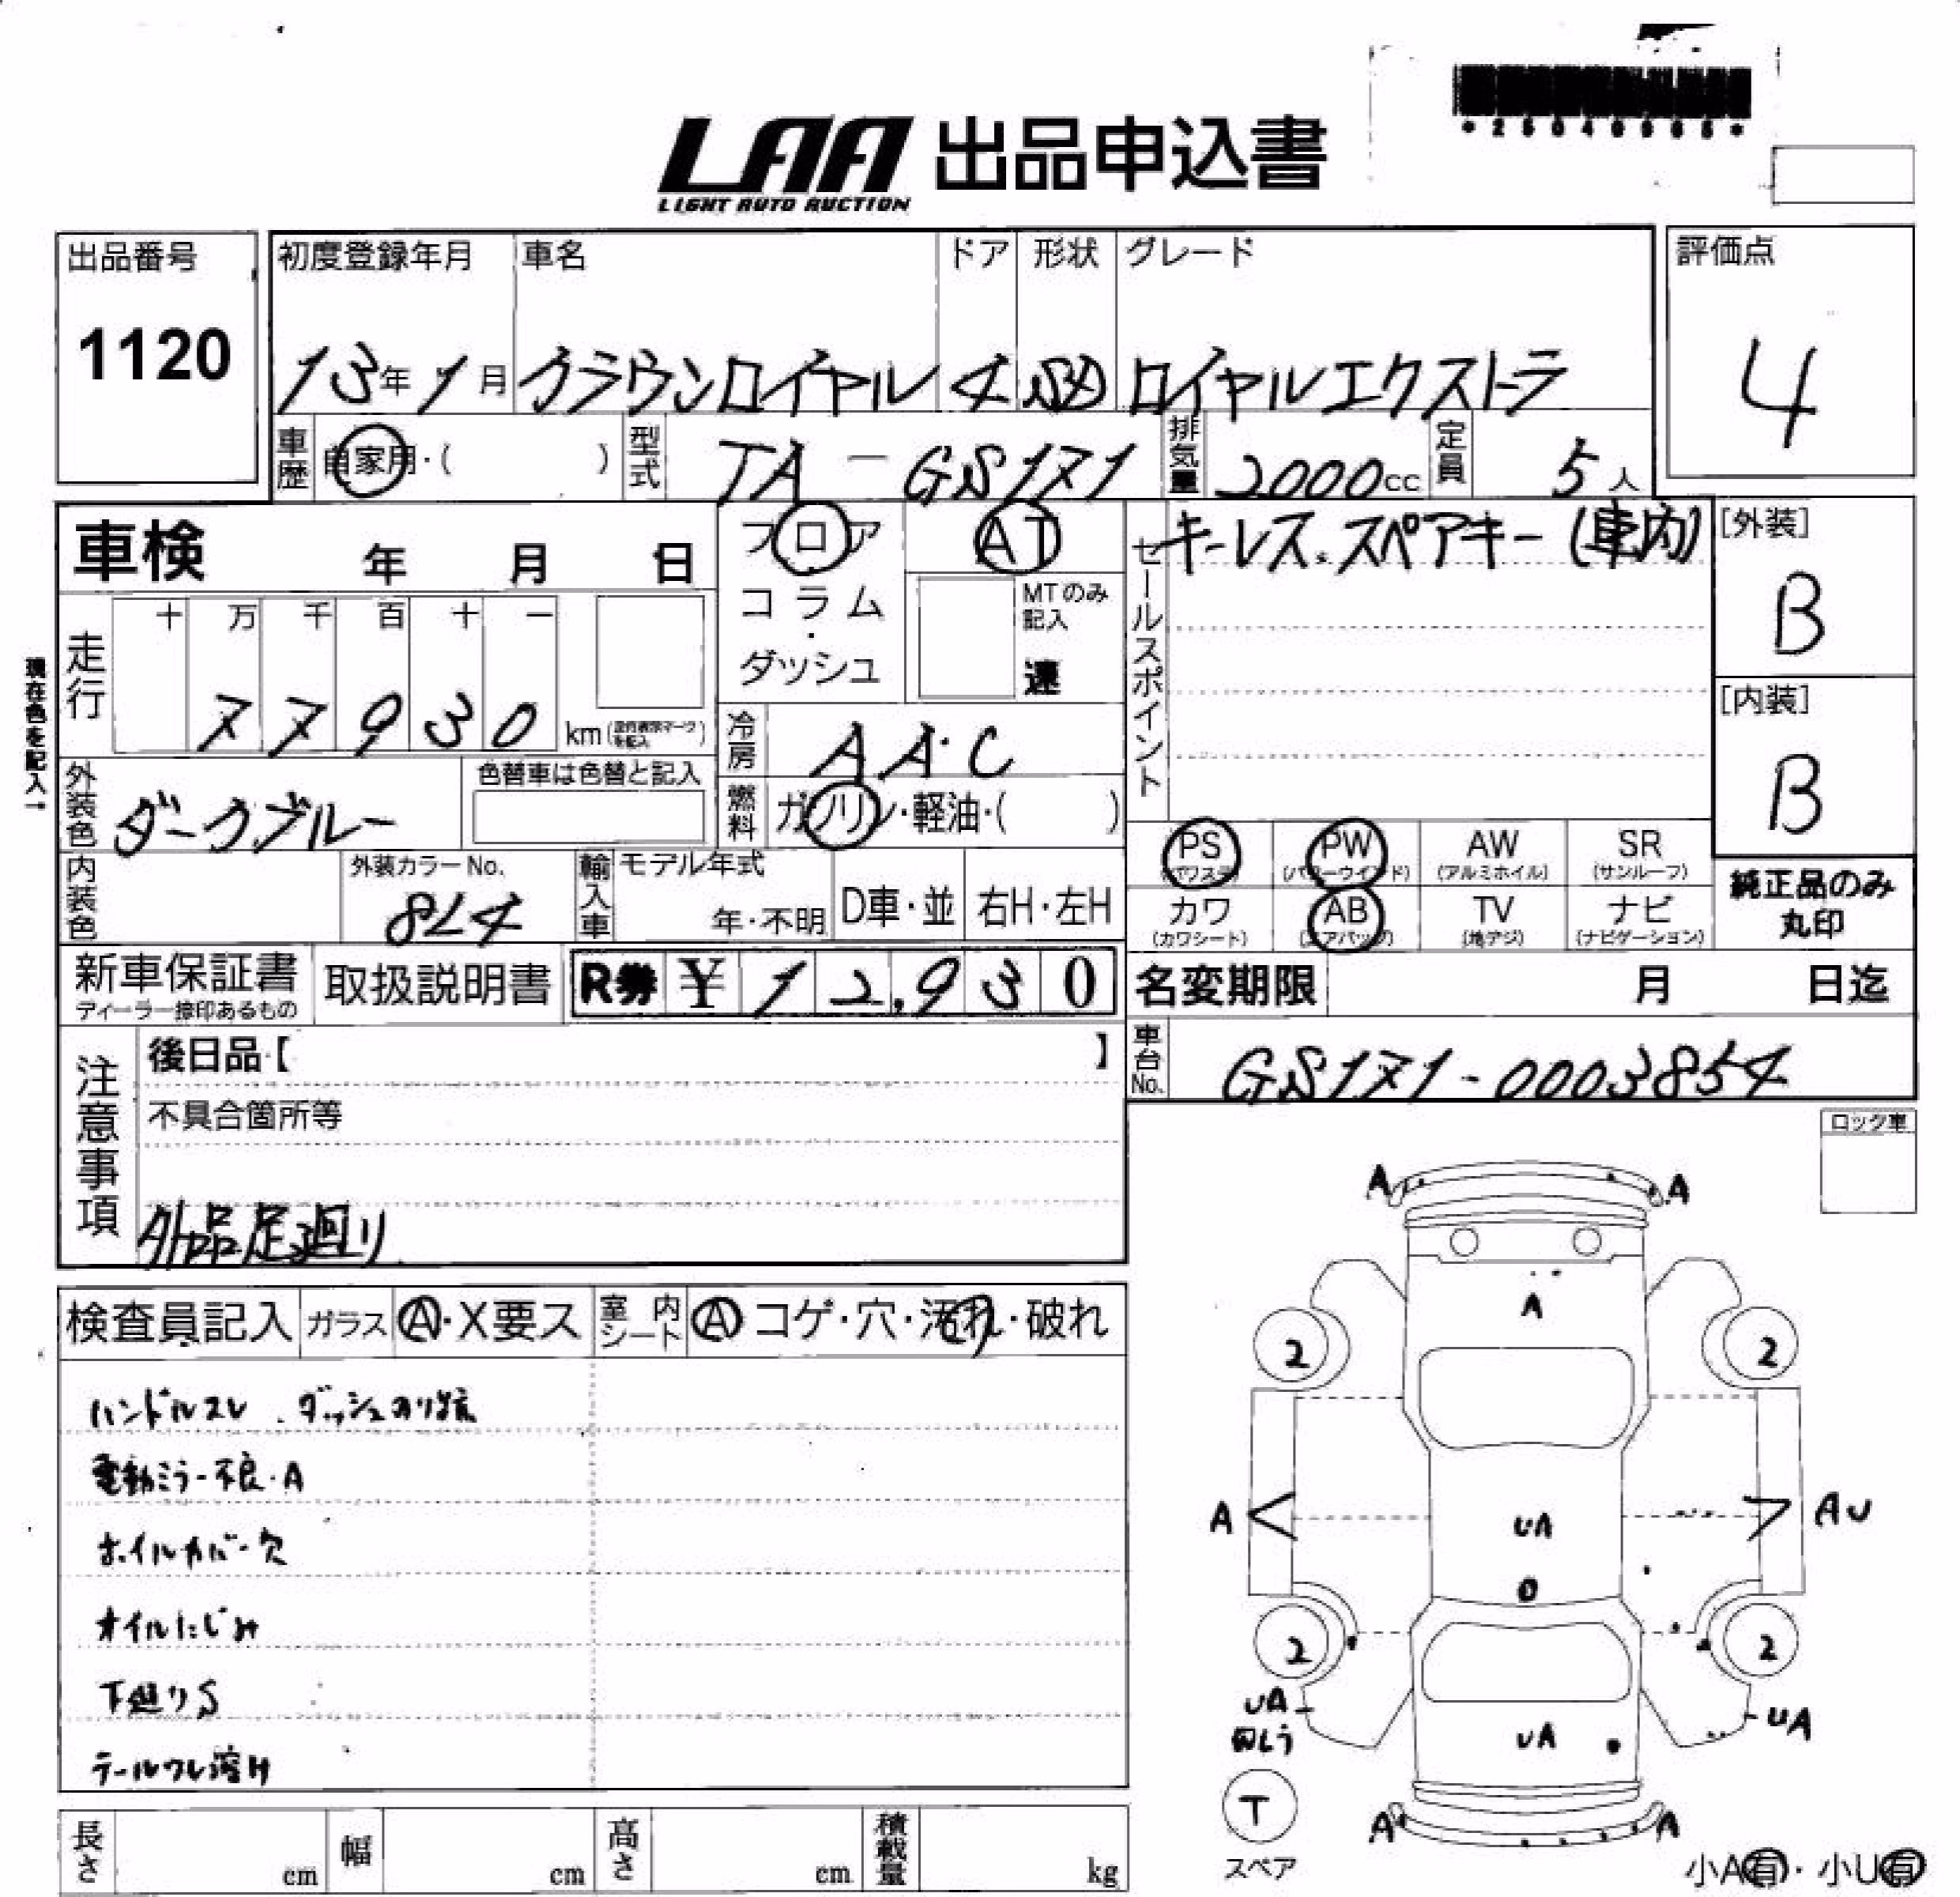 *25040985*
LAA 出品申込書
LIGHT AUTO AUCTION
出品番号
1120
初度登録年月
13年1月
車名
クラウンロイヤル
ドア
4
形状
SD
グレード
ロイヤルエクストラ
評価点
4
車歴 自家用・( )
型式 TA-GS171
排気量 2000cc
定員 5人
車検 年 月 日
フロア
コラム
・
ダッシュ
AT
MTのみ
記入
速
セールスポイント
キーレス.スペアキー(車内)
[外装]
B
[内装]
B
現在色を記入→
走行
十 万 千 百 十 一
77930 km
冷房 AA.C
外装色 ダークブルー
色替車は色替と記入
燃料 ガソリン・軽油・( )
内装色
外装カラーNo.
8L4
輸入車
モデル年式
年・不明
D車・並
右H・左H
PS (パワステ)
PW (パワーウインド)
AW (アルミホイル)
SR (サンルーフ)
カワ (カワシート)
AB (エアバック)
TV (地デジ)
ナビ (ナビゲーション)
純正品のみ
丸印
新車保証書
ディーラー捺印あるもの
取扱説明書
R券 ¥12,930
名変期限 月 日迄
車台No. GS171-0003854
注意事項
後日品【 】
不具合箇所等
外品足廻り
ロック車
検査員記入
ガラス A・X要ス
室内シート A コゲ・穴・汚れ・破れ
ハンドルスレ.ダッシュのり跡
電動ミラー不良.A
ホイルカバー欠
オイルにじみ
下廻りS
テールワレ溶け
A A
A
2 2
A UA AU
2 2
UA UA UA
T
スペア
A A
小A有・小U有
長さ cm
幅 cm
高さ cm
積載量 kg